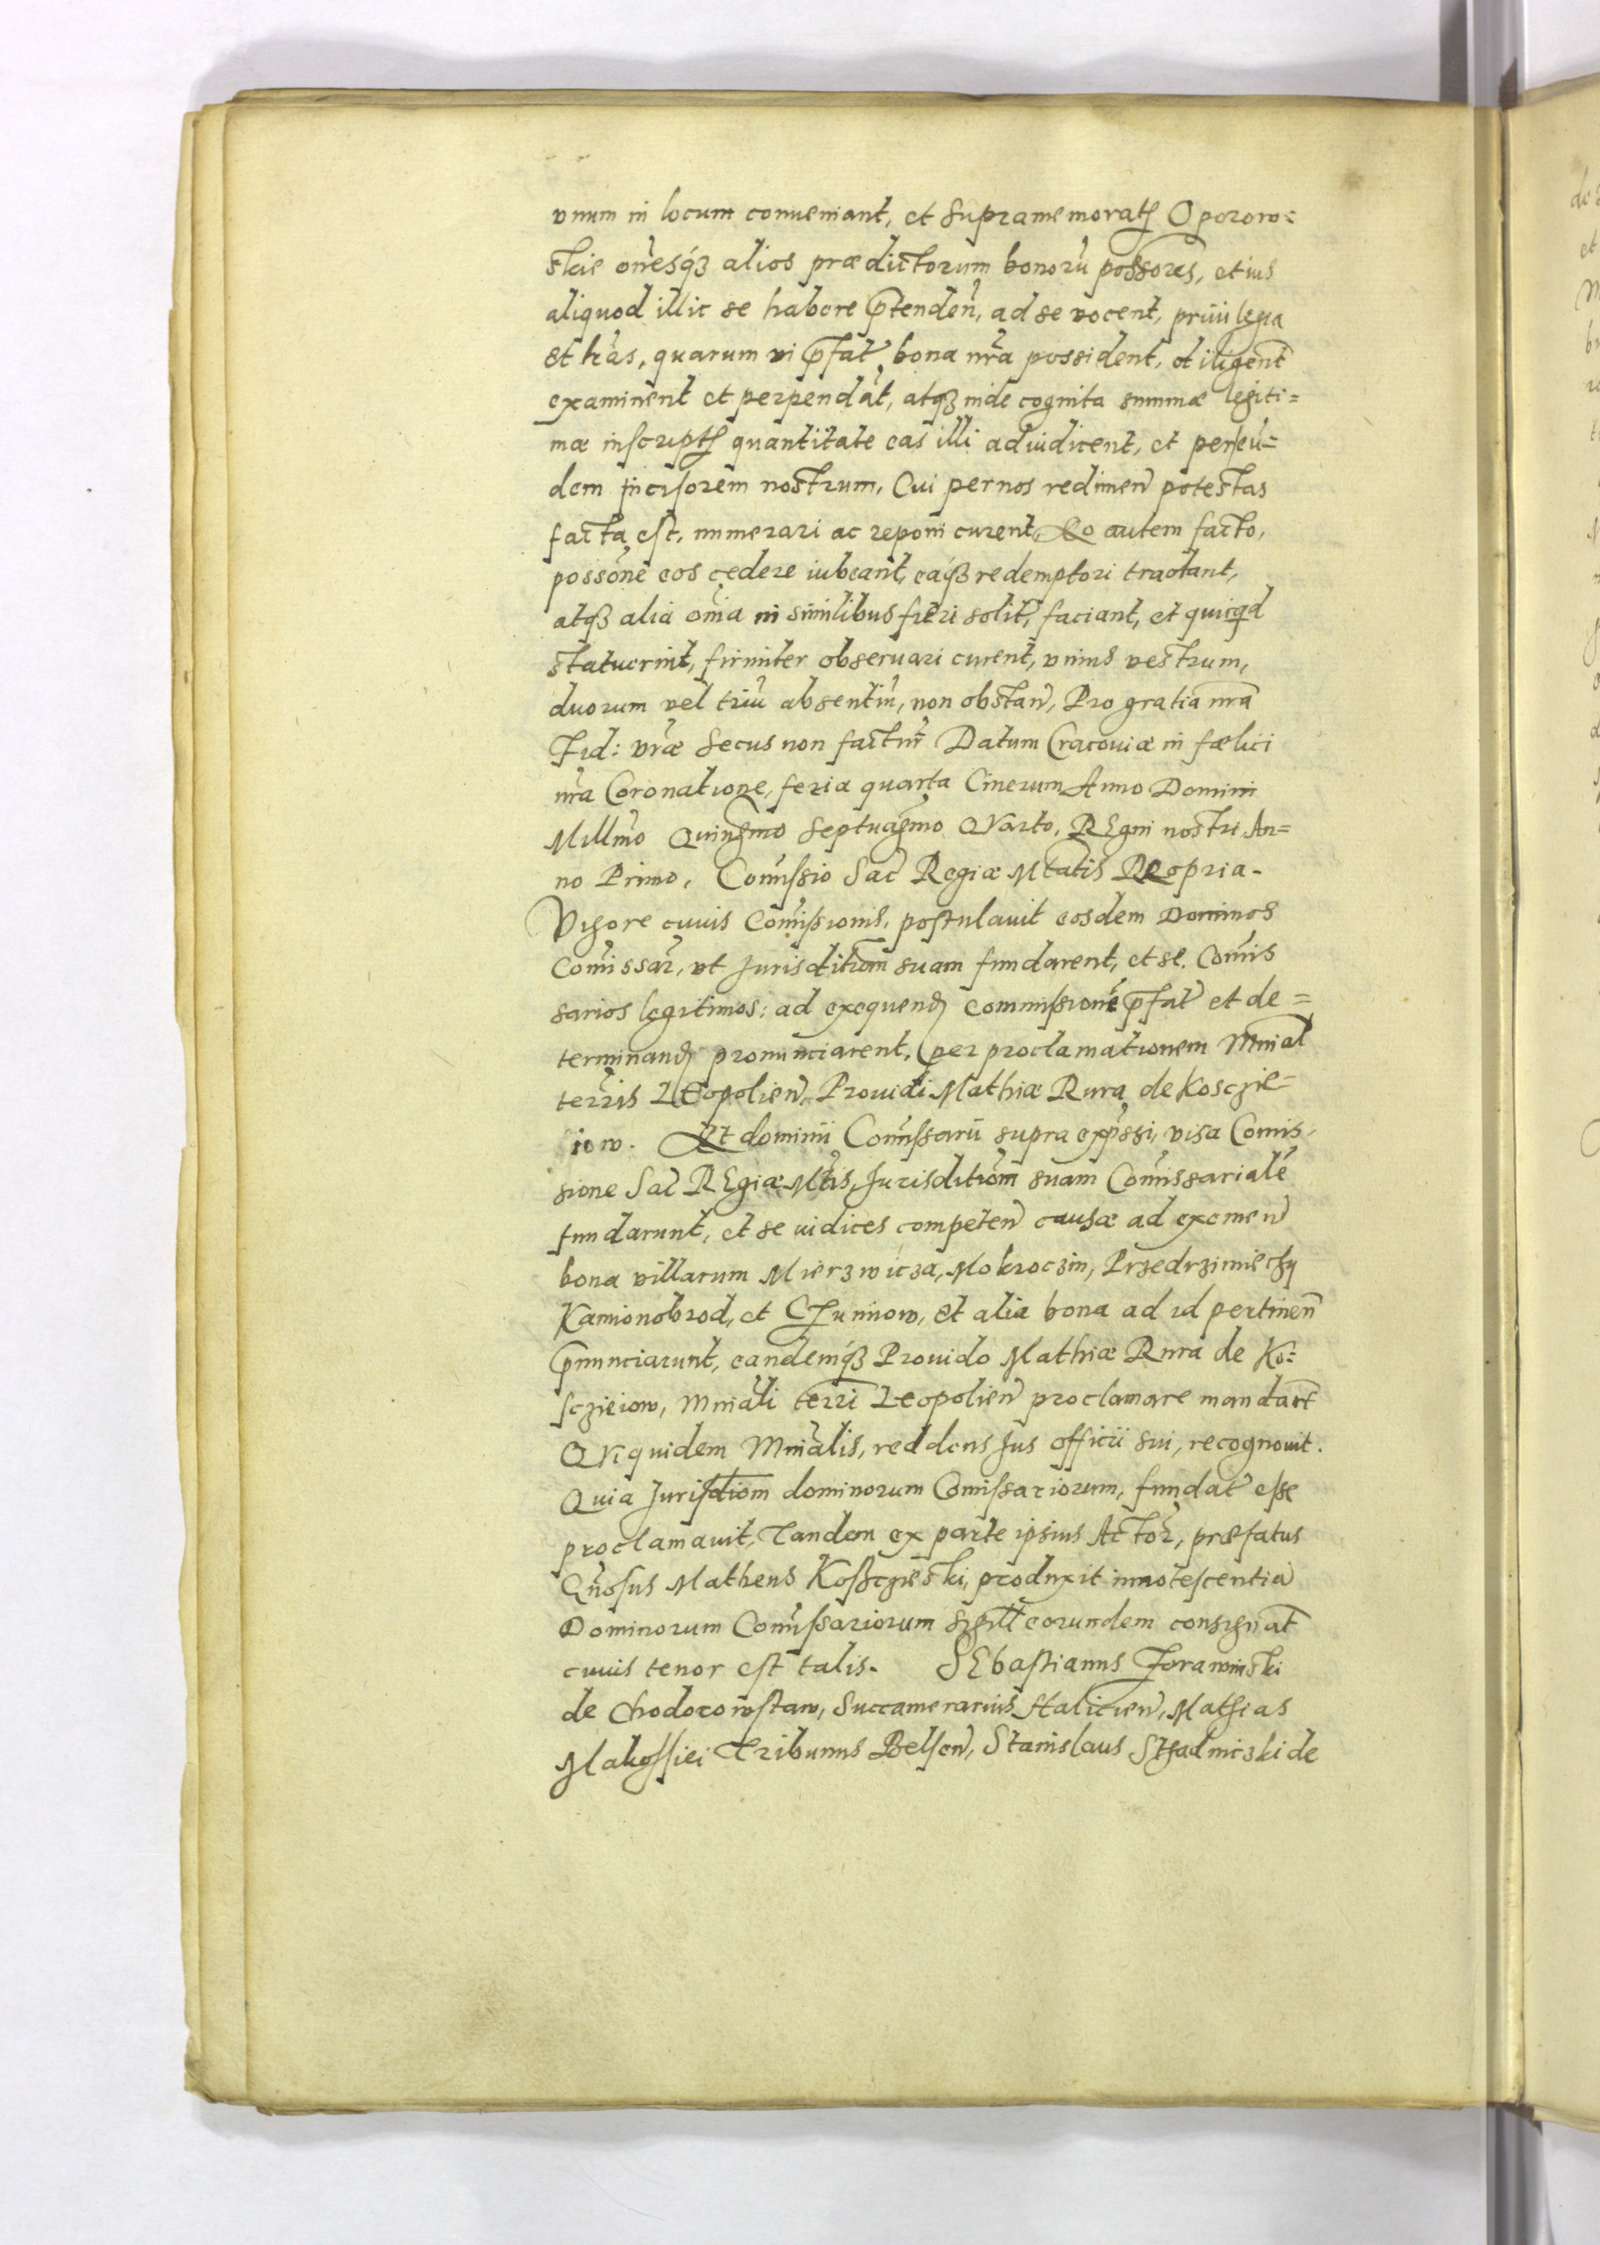 vnum in locum conueniant, et supramemorat Opororo=
skie oñesq3 alios prædictorum bonorũ possores, et ius
aliquod illic se habere p̃tendeñ, ad se vocent, priuilegia
et lr̃as, quarum vi p̃fat̃ bona nr̃a possident, diligent̃
examinent et perpendãt, atq3 inde cognita summæ legiti=
mæ inscript quantitate eas illi adiudicent, et per eũ=
dem Incisorem nostrum, Cui per nos redimeñ potestas
facta est, numerari ac reponi curent, Eo autem facto,
possõne eos cedere iubeant, eaq3 redemptori tradant,
atq3 alia om̃ia in similibus fieri solit̃, faciant, et quicqd
statuerint, firmiter obseruari curent, vnius vestrum,
duorum vel triũ absentiũ, non obstañ, Pro gratia nr̃a
Fid: vr̃æ secus non factur̃ Datum Cracouiæ in fælici
nr̃a Coronatione, feria quarta Cinerum Anno Domini
Millm̃o Quingm̃o Septuagm̃o QVarto, REgni nostri An=
no Primo, Com̃issio Sac̃ Regiæ Mtatis PRopria.
Vigore cuius Com̃issionis, postulauit eosdem Dominos
Com̃issar̃, vt Jurisditiom̃ suam fundarent, et se Com̃is
sarios legitimos: ad exequend com̃issionẽ p̃fat̃ et de=
terminand pronunciarent, per proclamationem Mnĩal
terr̃is LEopolieñ Prouidi Mathiæ Rura de Kosczie=
iow. Et domini Com̃issarii supra exp̃ssi, visa Com̃is,
sione Sac̃ REgiæ Mt̃is, Jurisditiõm suam Com̃issarialẽ
fundarunt, et se iudices competeñ causæ ad exemeñ
bona villarum Mierzwicza, Mokroczin, Przedrzimiechy
Kamionobrod, et CZunniow, et alia bona ad id pertineñ
p̃nunciarunt, eandemq3 Prouido Mathiæ Rura de Ko=
sczieiow, Mniãli terri Leopolieñ proclamare mandar̃t
QVi quidem Mniãlis, reddens Jus officii sui, recognouit.
Quia Jurisdtiom̃ dominorum Com̃issariorum, fundat̃ esse
proclamauit, Tandem ex parte ipsius Actor̃, præfatus
Gñosus Matheus Kossczieski, produxit innotescentiã
Dominorum Com̃issariorum sigill̃ eorundem consignat̃
cuius tenor est talis. SEbastianus Zorawinski
de Chodorowstaw, Succamerarius Halicieñ, Mathias
Makossiei Tribunus Belseñ, Stanislaus Sthadniczki de